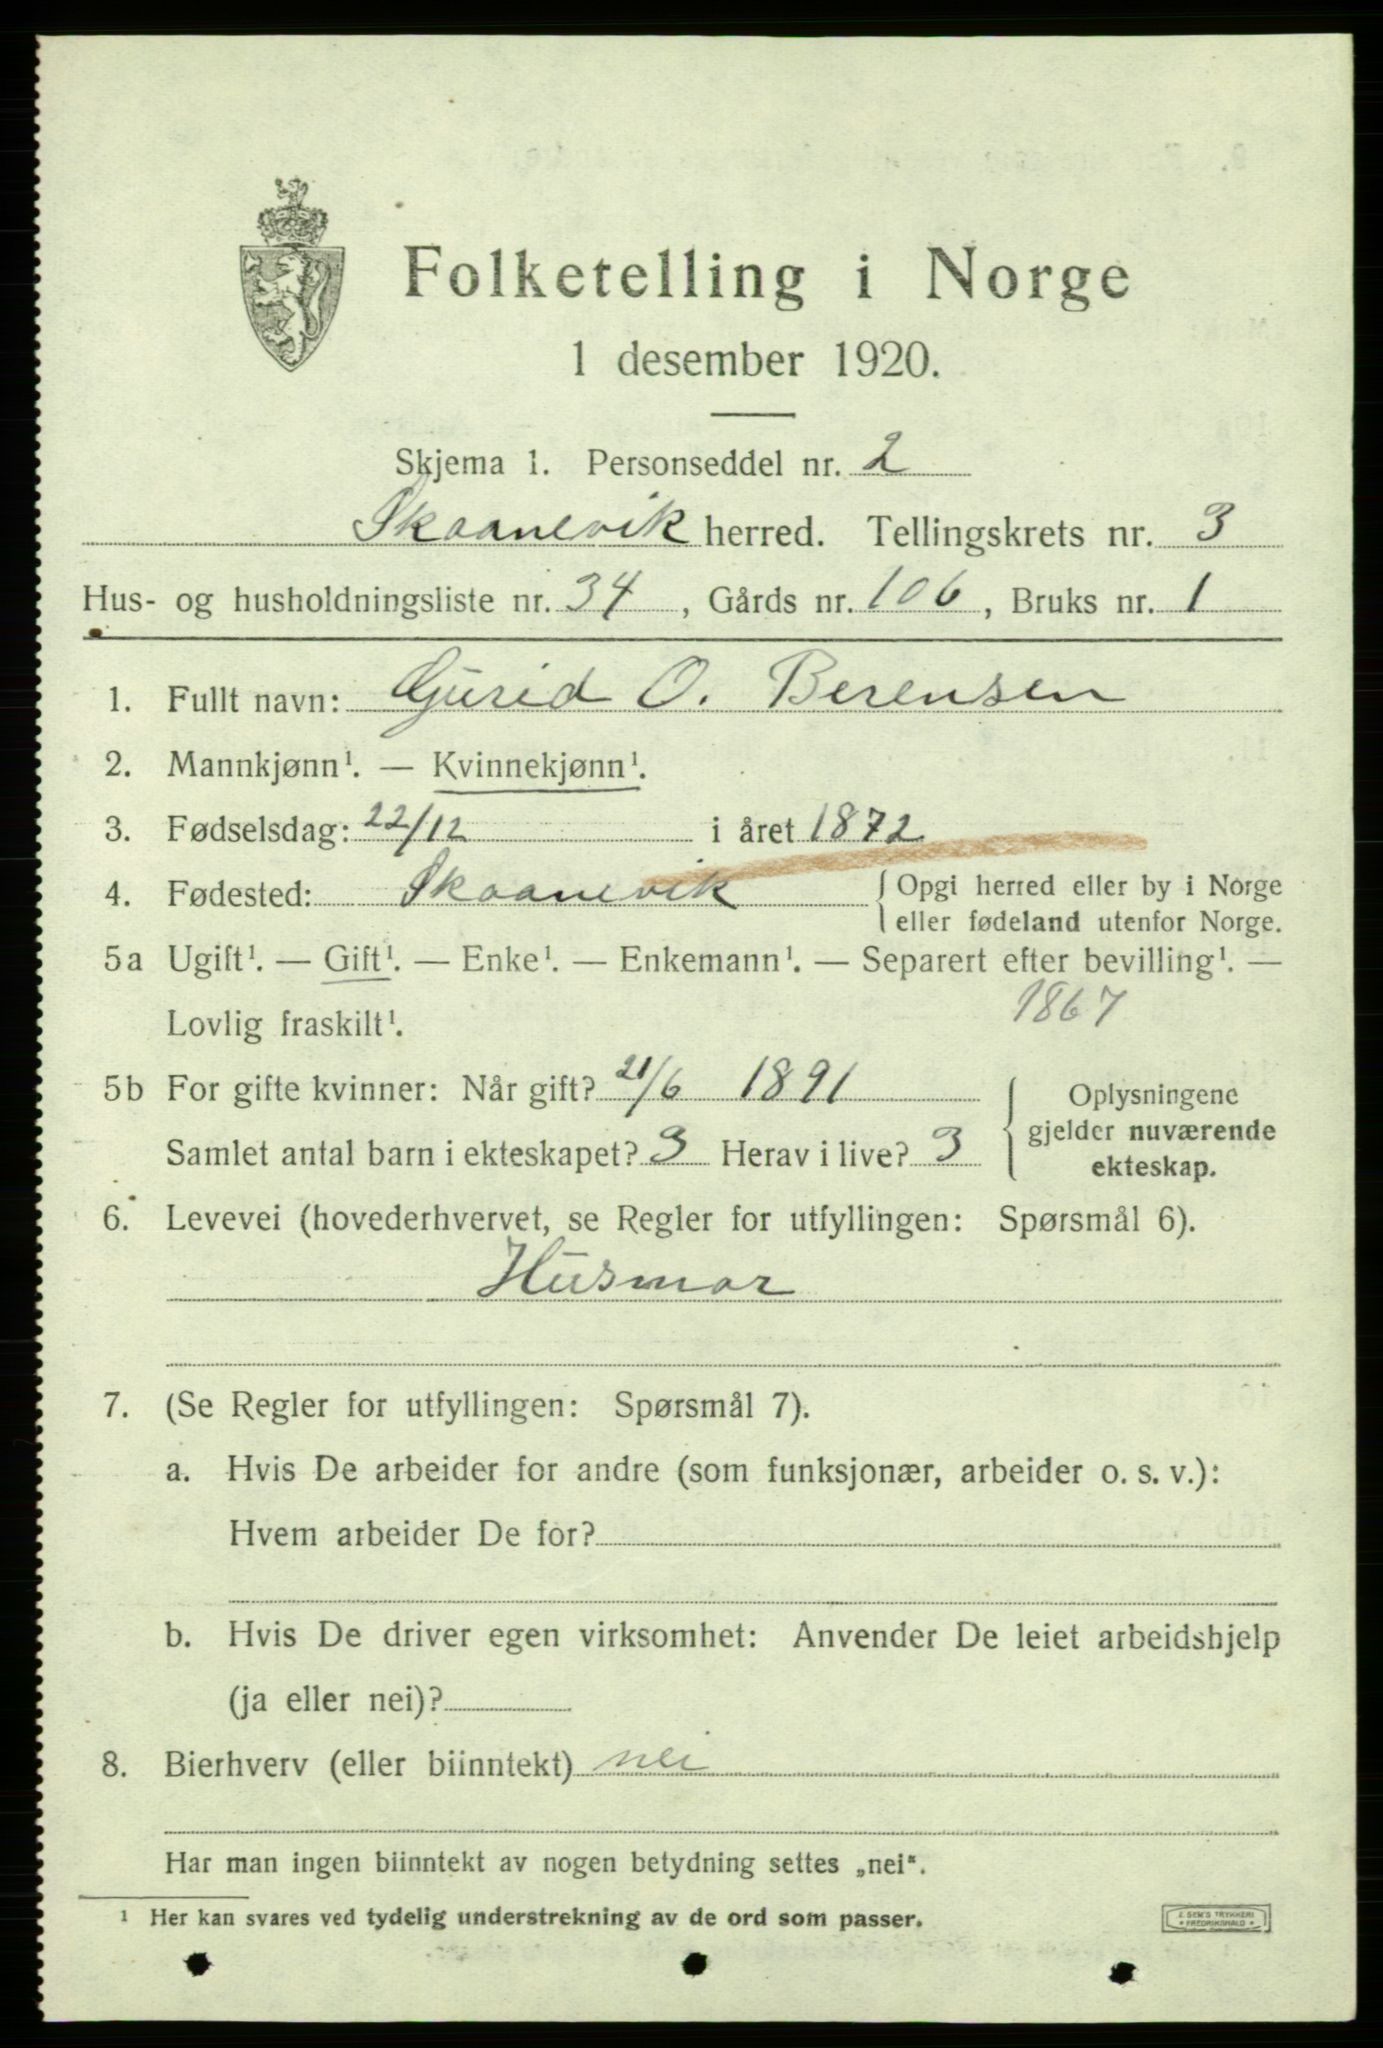 Folketelling i Norge
1 desember 1920.
Skjema 1. Personseddel nr. 2
Skaanevik herred. Tellingskrets nr. 3
Hus- og husholdningsliste nr. 34, Gårds nr. 106, Bruks nr. 1
1. Fullt navn: Gurid O. Berensen
2. Mannkjønn¹. — Kvinnekjønn¹.
3. Fødselsdag: 22/12 i året 1872
4. Fødested: Skaanevik { Opgi herred eller by i Norge
eller fødeland utenfor Norge.
5a Ugift¹. — Gift¹. — Enke¹. — Enkemann¹. — Separert efter bevilling¹. —
Lovlig fraskilt¹. 1867
5b For gifte kvinner: Når gift? 21/6 1891 { Oplysningene
gjelder nuværende
Samlet antal barn i ekteskapet? 3 Herav i live? 3 ekteskap.
6. Levevei (hovederhvervet, se Regler for utfyllingen: Spørsmål 6).
Husmor
7. (Se Regler for utfyllingen: Spørsmål 7).
a. Hvis De arbeider for andre (som funksjonær, arbeider o. s. v.):
Hvem arbeider De for?
b. Hvis De driver egen virksomhet: Anvender De leiet arbeidshjelp
(ja eller nei)?
8. Bierhverv (eller biinntekt) nei
Har man ingen biinntekt av nogen betydning settes „nei“.
¹ Her kan svares ved tydelig understrekning av de ord som passer.
E. SEM'S TRYKKERI
• FREDRIKSHALD •